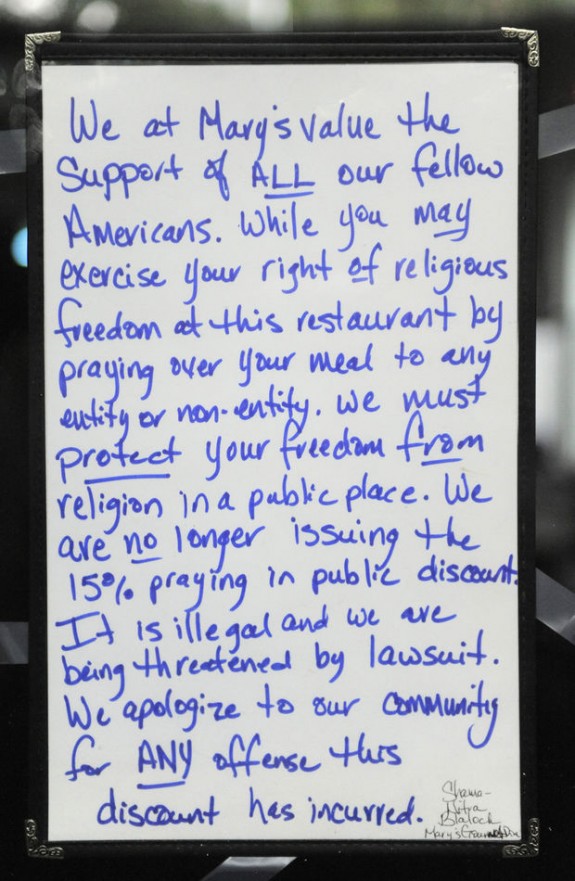 We at Mary's value the
Support of ALL our fellow
Americans. While you may
exercise your right of religious
freedom at this restaurant by
praying over your meal to any
entity or non-entity. we must
protect your freedom from
religion in a public place. We
are no longer issuing the
15% praying in public discount.
It is illegal and we are
being threatened by lawsuit.
We apologize to our community
for ANY offense this
discount has incurred.
Shama-
Blalock
Mary's